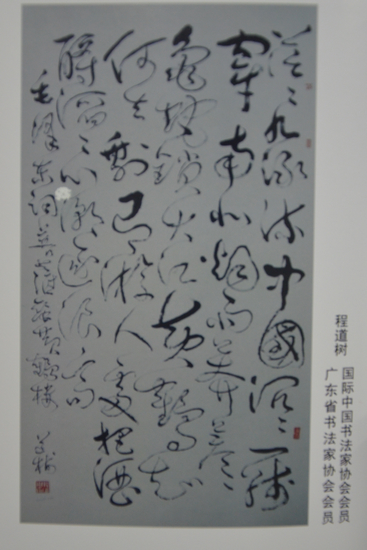 茫々九派流中國沉々一线
穿南北烟雨莽苍々
龟蛇锁大江黄鹤知
何去剩有游人處把酒
酹滔々心潮逐浪高
毛泽东词菩萨蛮黄鹤楼 道树
程道树 国际中国书法家协会会员
广东省书法家协会会员